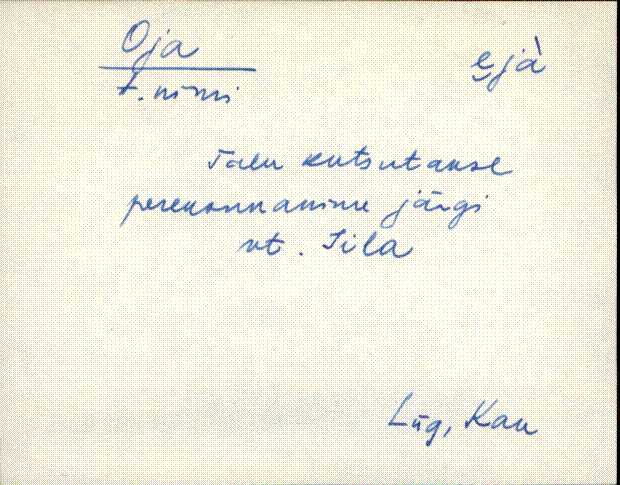 Oja e̮jà
t. nimi
Talu kutsutakse
perekonnanime järgi
vt. Sila
Lüg, Kau